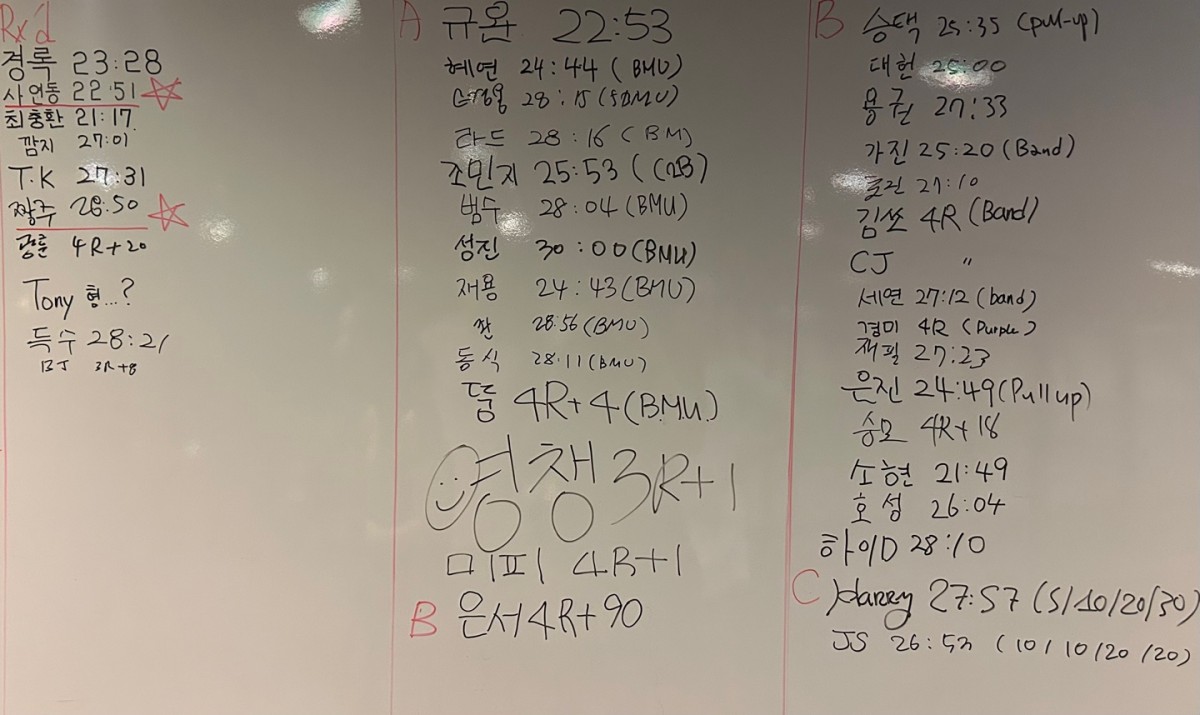 Rx'd
경록 23:28
사연동 22:51
최충환 21:17
깜지 27:01
T.K 27:31
짱구 28:50
광훈 4R+20
Tony 형...?
득수 28:21
BJ 3R+8
A 규완 22:53
혜연 24:44 (BMU)
28:15
라드 28:16 (BM)
조민지 25:53 (C2B)
범수 28:04 (BMU)
성진 30:00 (BMU)
재용 24:43 (BMU)
짠 28:56 (BMU)
동식 28:11 (BMU)
뚬 4R+4 (B.M.U.)
영챙 3R+1
미피 4R+1
B 은서 4R+90
B 승택 25:35 (pull-up)
대헌 25:00
용권 27:33
가진 25:20 (Band)
27:10
김쏘 4R (Band)
CJ "
세연 27:12 (band)
경미 4R (Purple)
재필 27:23
은진 24:49 (Pull up)
승모 4R+18
소현 21:49
호성 26:04
하이D 28:10
C) Harry 27:57 (5/10/20/30)
JS 26:53 (10/10/20/20)